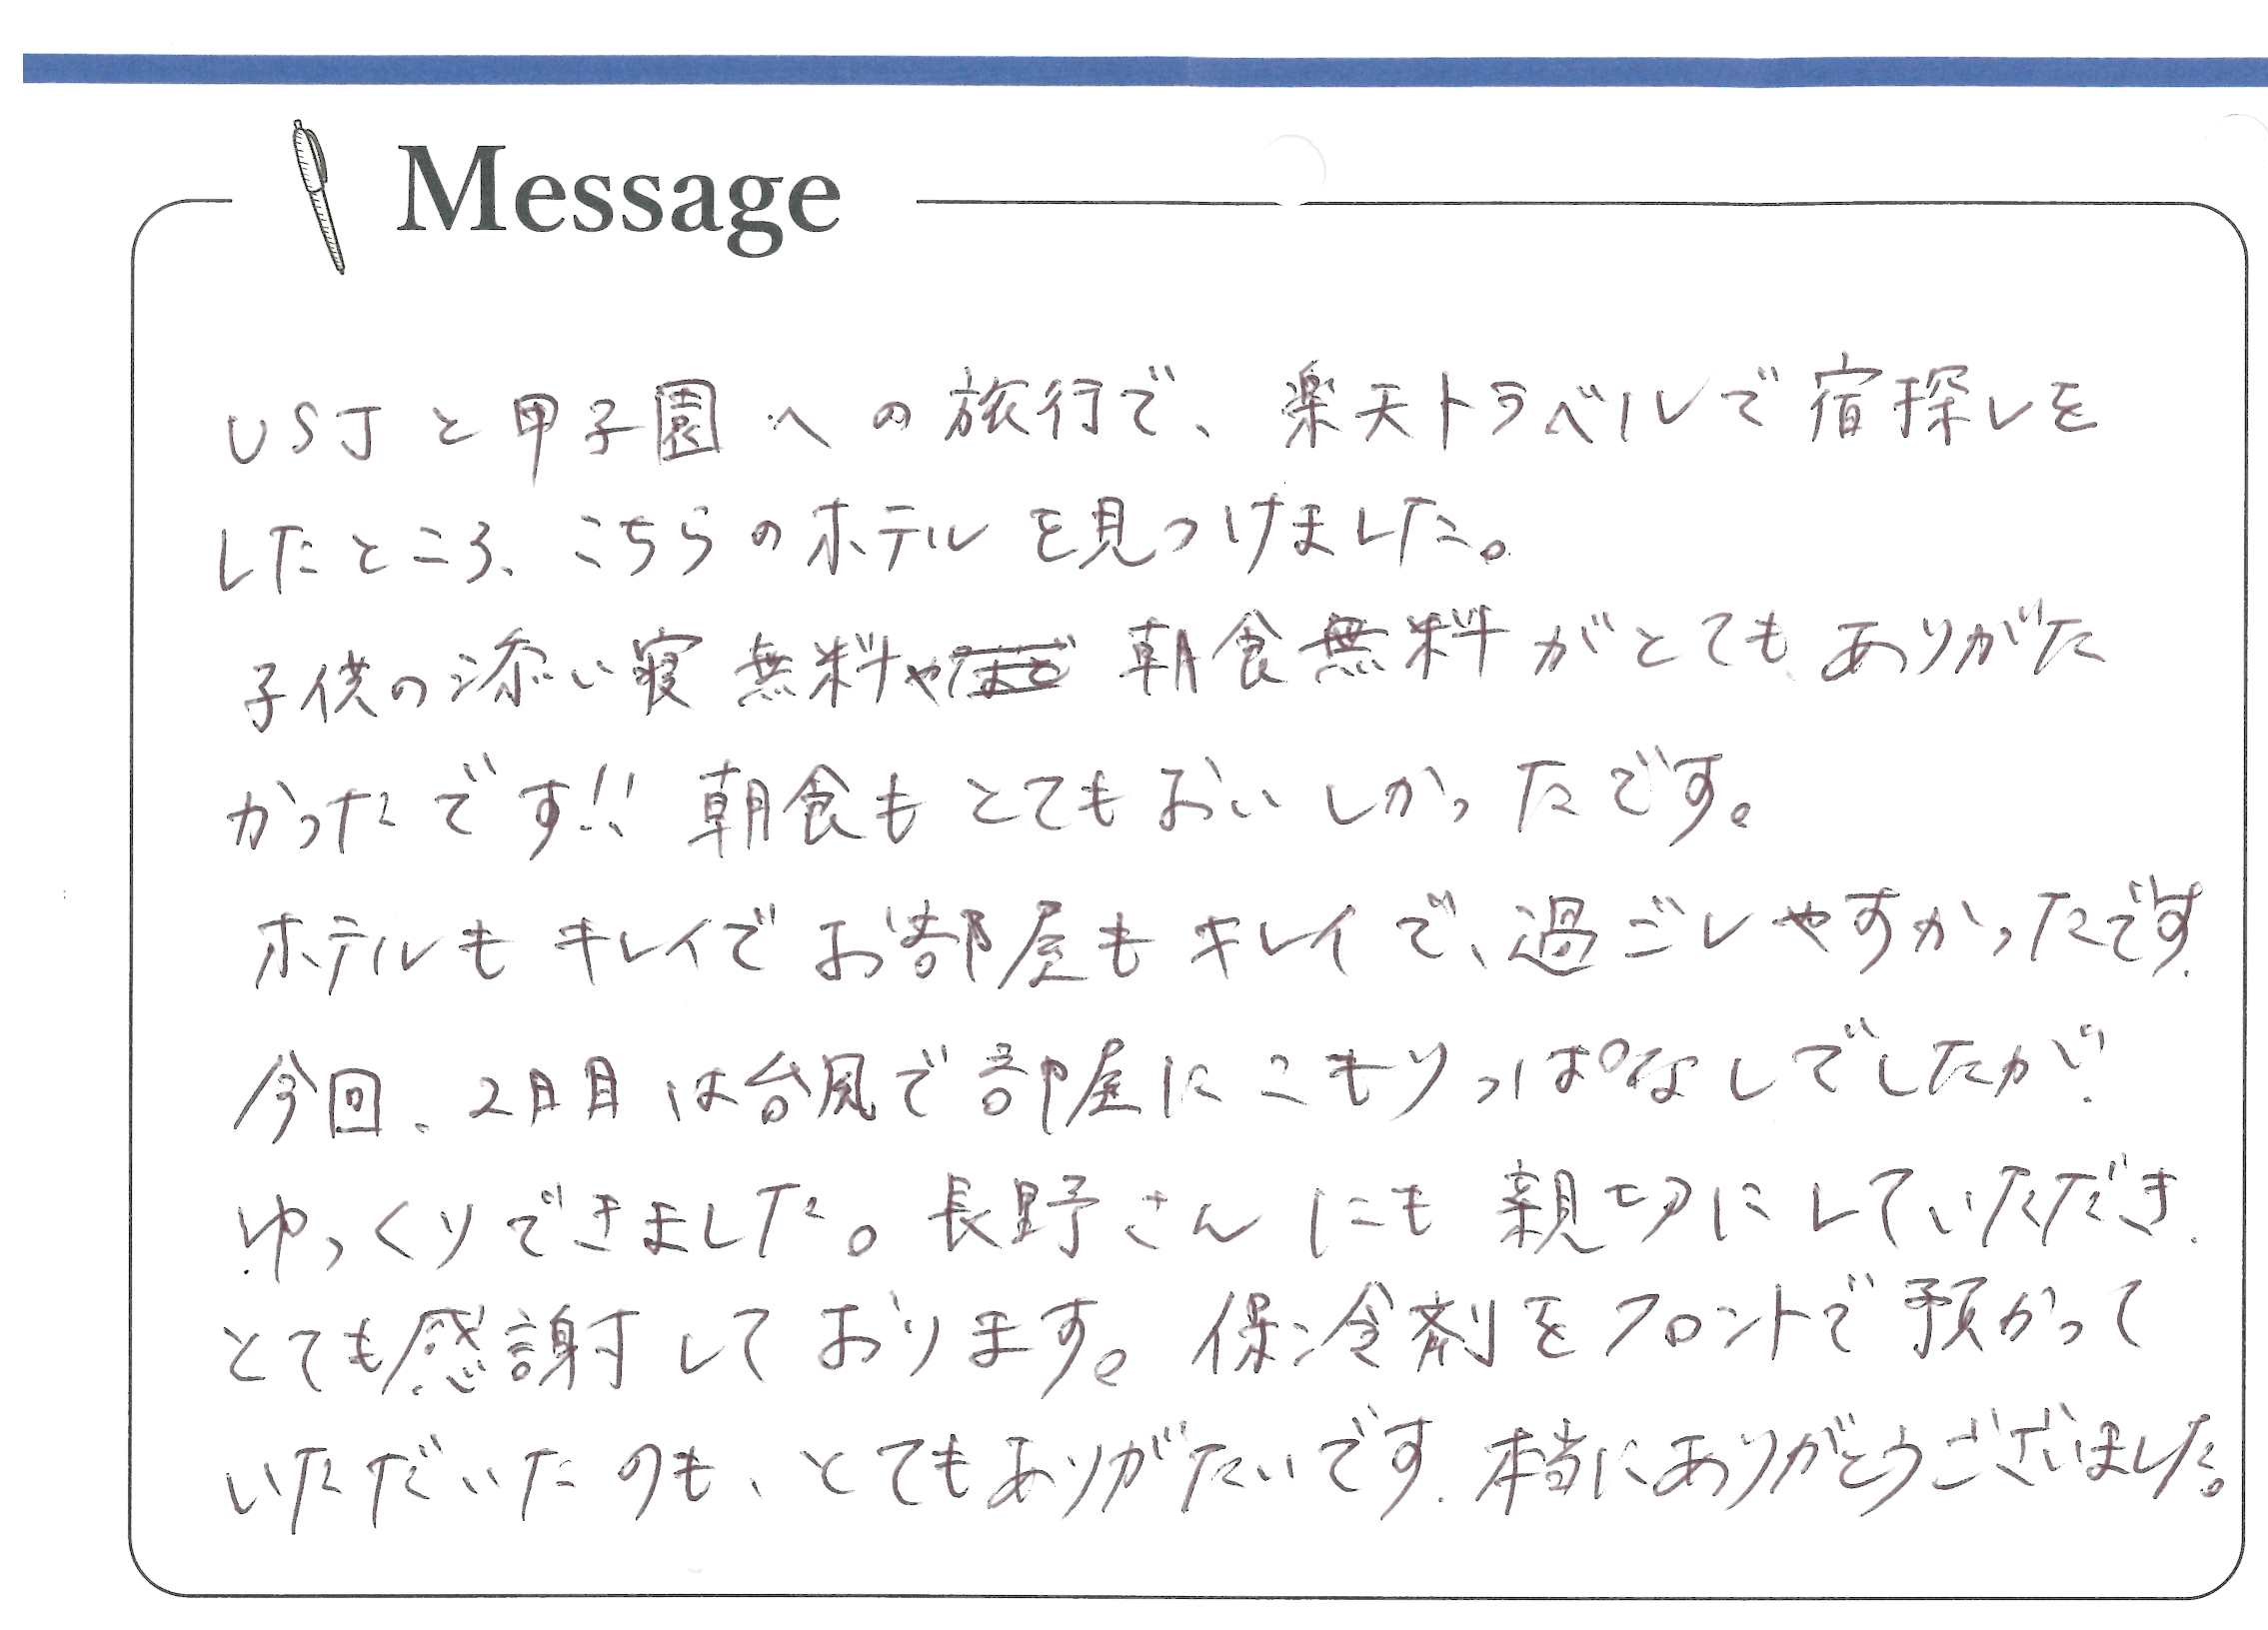 Message
USJと甲子園への旅行で、楽天トラベルで宿探しを
したところ、こちらのホテルを見つけました。
子供の添い寝無料や朝食無料がとてもありがた
かったです!! 朝食もとてもおいしかったです。
ホテルもキレイでお部屋もキレイで、過ごしやすかったです.
今回、2日目は台風で部屋にこもりっぱなしでしたが、
ゆっくりできました。長野さんにも親切にしていただき、
とても感謝しております。保冷剤をフロントで預かって
いただいたのも、とてもありがたいです.本当にありがとうございました。